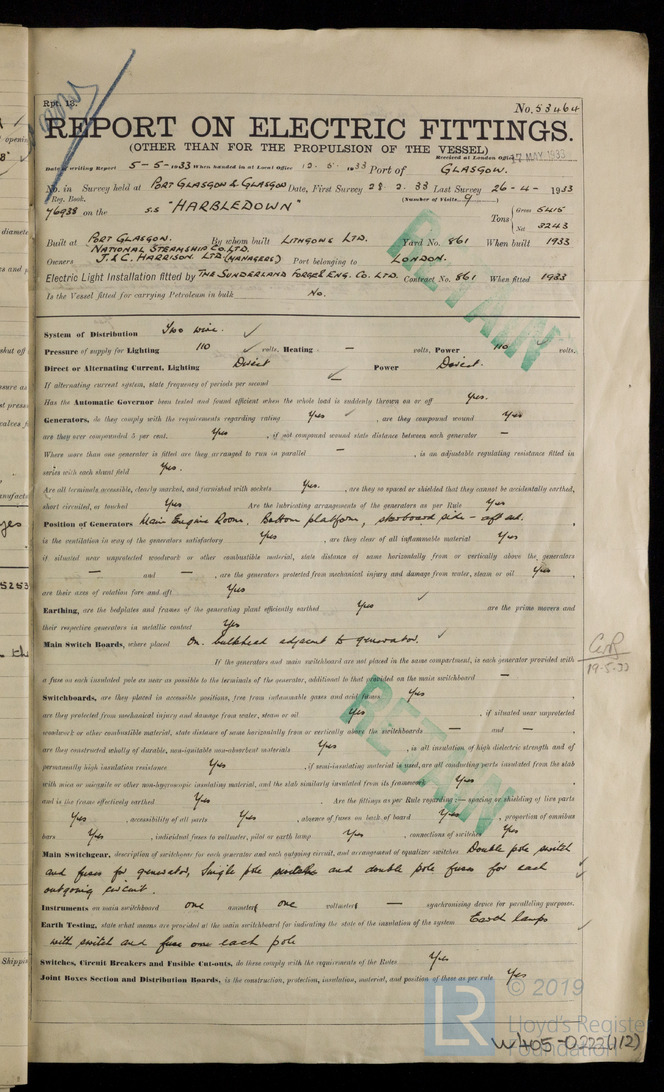 Rpt. 13.
No. 53464
REPORT ON ELECTRIC FITTINGS.
(OTHER THAN FOR THE PROPULSION OF THE VESSEL)
Received at London Office 17 MAY 1933
Date of writing Report 5-5-1933 When handed in at Local Office 12.5.1933 Port of GLASGOW.
No. in Survey held at PORT GLASGOW & GLASGOW Date, First Survey 28.2.33 Last Survey 26-4-1933
Reg. Book. (Number of Visits 9)
76938 on the S.S "HARBLEDOWN" Tons { Gross 5415
Net 3243
Built at PORT GLASGOW. By whom built LITHGOWS LTD. Yard No. 861 When built 1933
NATIONAL STEAMSHIP CO. LTD.
Owners J. & C. HARRISON. LTD (MANAGERS) Port belonging to LONDON.
Electric Light Installation fitted by THE SUNDERLAND FORGE & ENG. CO. LTD. Contract No. 861 When fitted 1933
Is the Vessel fitted for carrying Petroleum in bulk No.
RETAIN
System of Distribution Two wire. ✓
Pressure of supply for Lighting 110 ✓ volts, Heating - volts, Power 110 ✓ volts.
Direct or Alternating Current, Lighting Direct ✓ Power Direct.
If alternating current system, state frequency of periods per second -
Has the Automatic Governor been tested and found efficient when the whole load is suddenly thrown on or off Yes.
Generators, do they comply with the requirements regarding rating Yes ✓, are they compound wound Yes
are they over compounded 5 per cent. Yes, if not compound wound state distance between each generator -
Where more than one generator is fitted are they arranged to run in parallel -, is an adjustable regulating resistance fitted in
series with each shunt field Yes.
Are all terminals accessible, clearly marked, and furnished with sockets Yes., are they so spaced or shielded that they cannot be accidentally earthed,
short circuited, or touched Yes Are the lubricating arrangements of the generators as per Rule Yes
Position of Generators Main Engine Room, Bottom platform, starboard side - aft.
is the ventilation in way of the generators satisfactory Yes, are they clear of all inflammable material Yes
if situated near unprotected woodwork or other combustible material, state distance of same horizontally from or vertically above the generators
- and -, are the generators protected from mechanical injury and damage from water, steam or oil Yes,
are their axes of rotation fore and aft Yes
Earthing, are the bedplates and frames of the generating plant efficiently earthed Yes ✓ are the prime movers and
their respective generators in metallic contact Yes
Main Switch Boards, where placed On bulkhead adjacent to generator. ✓
If the generators and main switchboard are not placed in the same compartment, is each generator provided with
a fuse on each insulated pole as near as possible to the terminals of the generator, additional to that provided on the main switchboard -
19.5.33
Switchboards, are they placed in accessible positions, free from inflammable gases and acid fumes Yes,
are they protected from mechanical injury and damage from water, steam or oil Yes, if situated near unprotected
woodwork or other combustible material, state distance of same horizontally from or vertically above the switchboards - and -,
are they constructed wholly of durable, non-ignitable non-absorbent materials Yes, is all insulation of high dielectric strength and of
permanently high insulation resistance Yes, if semi-insulating material is used, are all conducting parts insulated from the slab
with mica or micanite or other non-hygroscopic insulating material, and the slab similarly insulated from its framework Yes,
and is the frame effectively earthed Yes. Are the fittings as per Rule regarding:— spacing or shielding of live parts
Yes, accessibility of all parts Yes, absence of fuses on back of board Yes, proportion of omnibus
bars Yes, individual fuses to voltmeter, pilot or earth lamp Yes, connections of switches Yes
RETAIN
Main Switchgear, description of switchgear for each generator and each outgoing circuit, and arrangement of equalizer switches Double pole switch
and fuses for generator, Single pole switch and double pole fuses for each
outgoing circuit. ✓
Instruments on main switchboard one ammeters one voltmeters - synchronising device for paralleling purposes.
Earth Testing, state what means are provided at the main switchboard for indicating the state of the insulation of the system Earth lamps
with switch and fuse one each pole ✓
Switches, Circuit Breakers and Fusible Cut-outs, do these comply with the requirements of the Rules Yes
Joint Boxes Section and Distribution Boards, is the construction, protection, insulation, material, and position of these as per rule Yes
LR
© 2019
Lloyd's Register
Foundation
W405-0222(1/2)